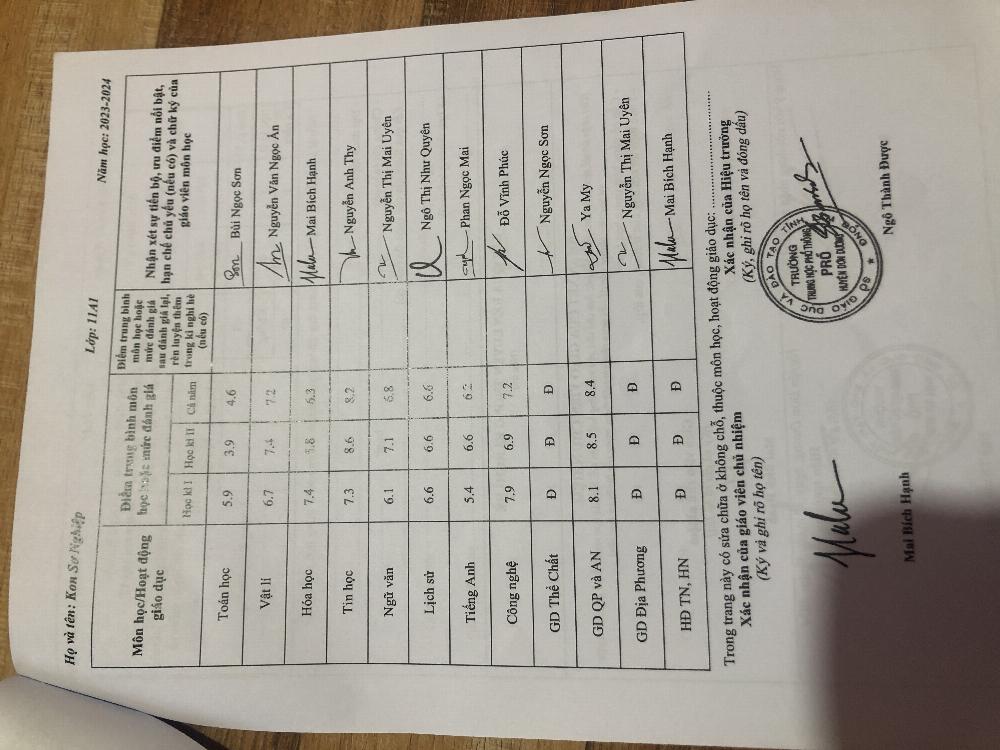 Họ và tên: Kon Sơ Nghiệp Lớp: 11A1 Năm học: 2023-2024
Môn học/Hoạt động giáo dục
Điểm trung bình môn học hoặc mức đánh giá
Điểm trung bình môn học hoặc mức đánh giá sau đánh giá lại, rèn luyện thêm trong kì nghỉ hè (nếu có)
Nhận xét sự tiến bộ, ưu điểm nổi bật, hạn chế chủ yếu (nếu có) và chữ ký của giáo viên môn học
Học kì I Học kì II Cả năm
Toán học 5.9 3.9 4.6 Bùi Ngọc Sơn
Vật lí 6.7 7.4 7.2 Nguyễn Văn Ngọc Ẩn
Hóa học 7.4 5.8 6.3 Mai Bích Hạnh
Tin học 7.3 8.6 8.2 Nguyễn Anh Thy
Ngữ văn 6.1 7.1 6.8 Nguyễn Thị Mai Uyên
Lịch sử 6.6 6.6 6.6 Ngô Thị Như Quyên
Tiếng Anh 5.4 6.6 6.2 Phan Ngọc Mai
Công nghệ 7.9 6.9 7.2 Đỗ Vĩnh Phúc
GD Thể Chất Đ Đ Đ Nguyễn Ngọc Sơn
GD QP và AN 8.1 8.5 8.4 Ya My
GD Địa Phương Đ Đ Đ Nguyễn Thị Mai Uyên
HĐ TN, HN Đ Đ Đ Mai Bích Hạnh
Trong trang này có sửa chữa ở không chỗ, thuộc môn học, hoạt động giáo dục: ................................
Xác nhận của giáo viên chủ nhiệm
(Ký và ghi rõ họ tên)
Mai Bích Hạnh
Xác nhận của Hiệu trưởng
(Ký, ghi rõ họ tên và đóng dấu)
SỞ GIÁO DỤC VÀ ĐÀO TẠO TỈNH LÂM ĐỒNG
TRƯỜNG
TRUNG HỌC PHỔ THÔNG
PRÓ
HUYỆN ĐƠN DƯƠNG
Ngô Thành Được